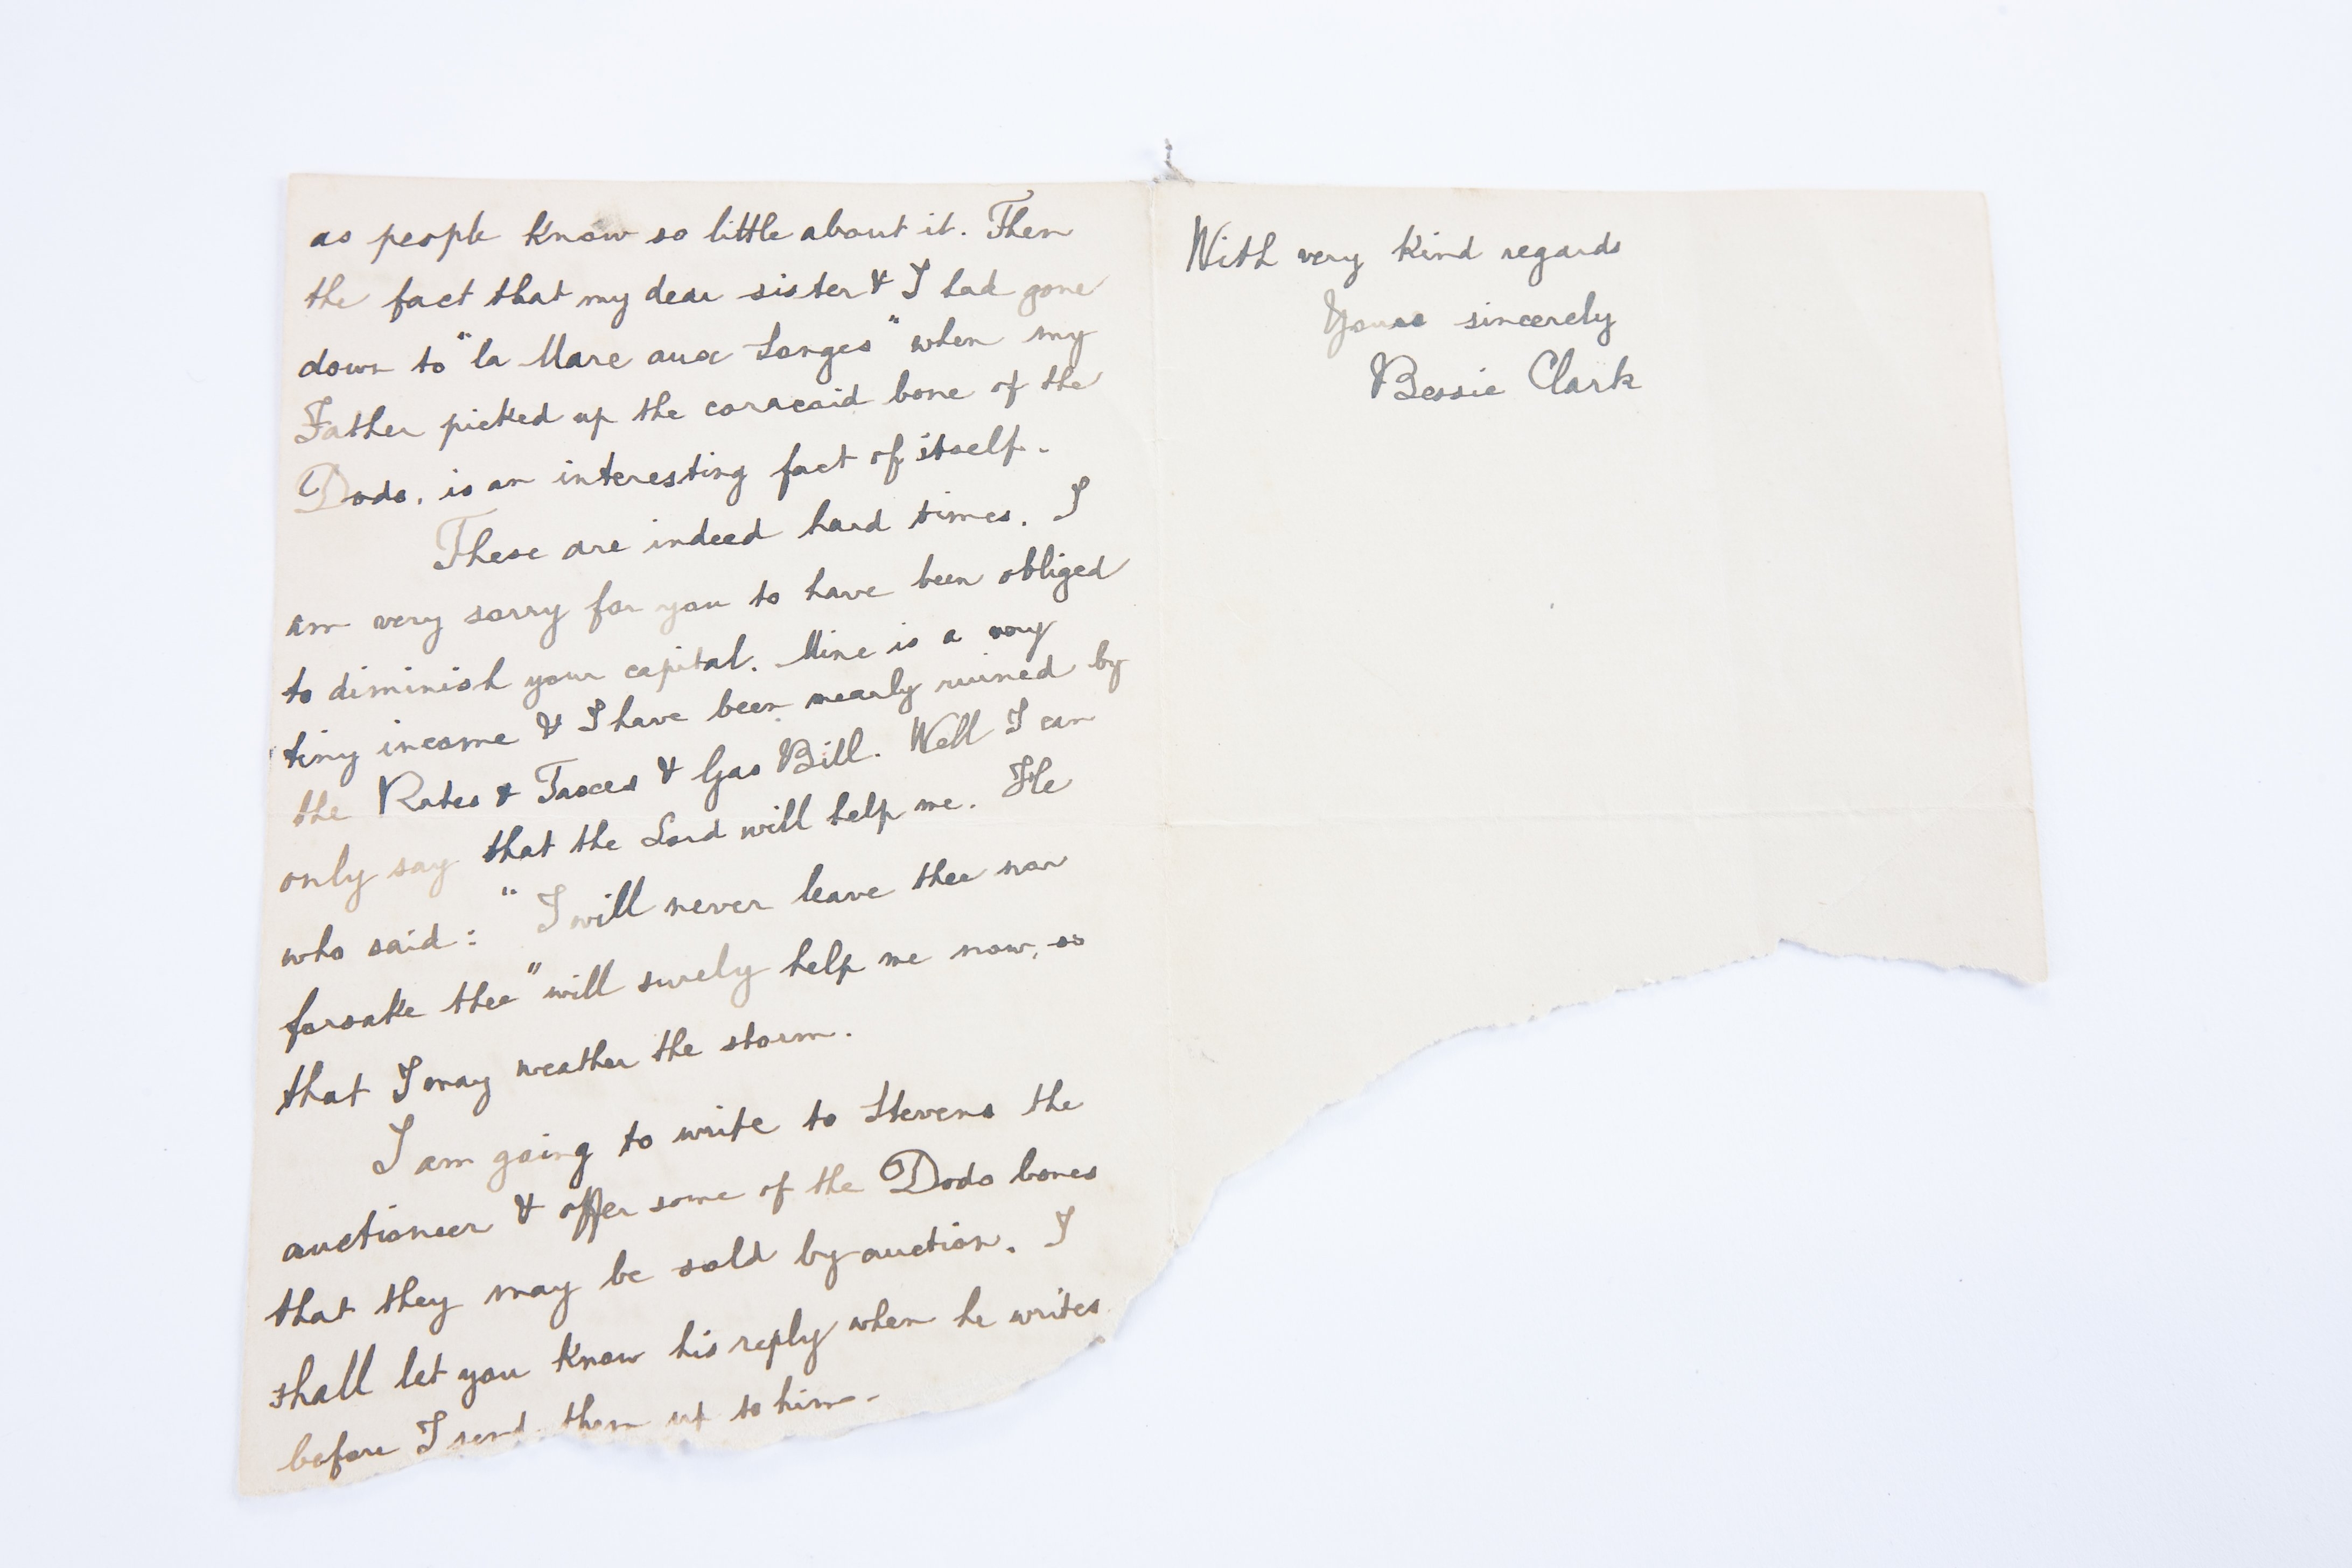 as people know so little about it. Then
the fact that my dear sister & I had gone
down to "la Mare aux Songes" when my
Father picked up the coracoid bone of the
Dodo, is an interesting fact of itself.
These are indeed hard times. I
am very sorry for you to have been obliged
to diminish your capital. Mine is a very
tiny income & I have been nearly ruined by
the Rates & Taxes & Gas Bill. Well I can
only say that the Lord will help me. He
who said: "I will never leave thee nor
forsake thee" will surely help me now, so
that I may weather the storm.
I am going to write to Stevens the
auctioneer & offer some of the Dodo bones
that they may be sold by auction. I
shall let you know his reply when he writes
before I send them up to him.
With very kind regards
Yours sincerely
Bessie Clark